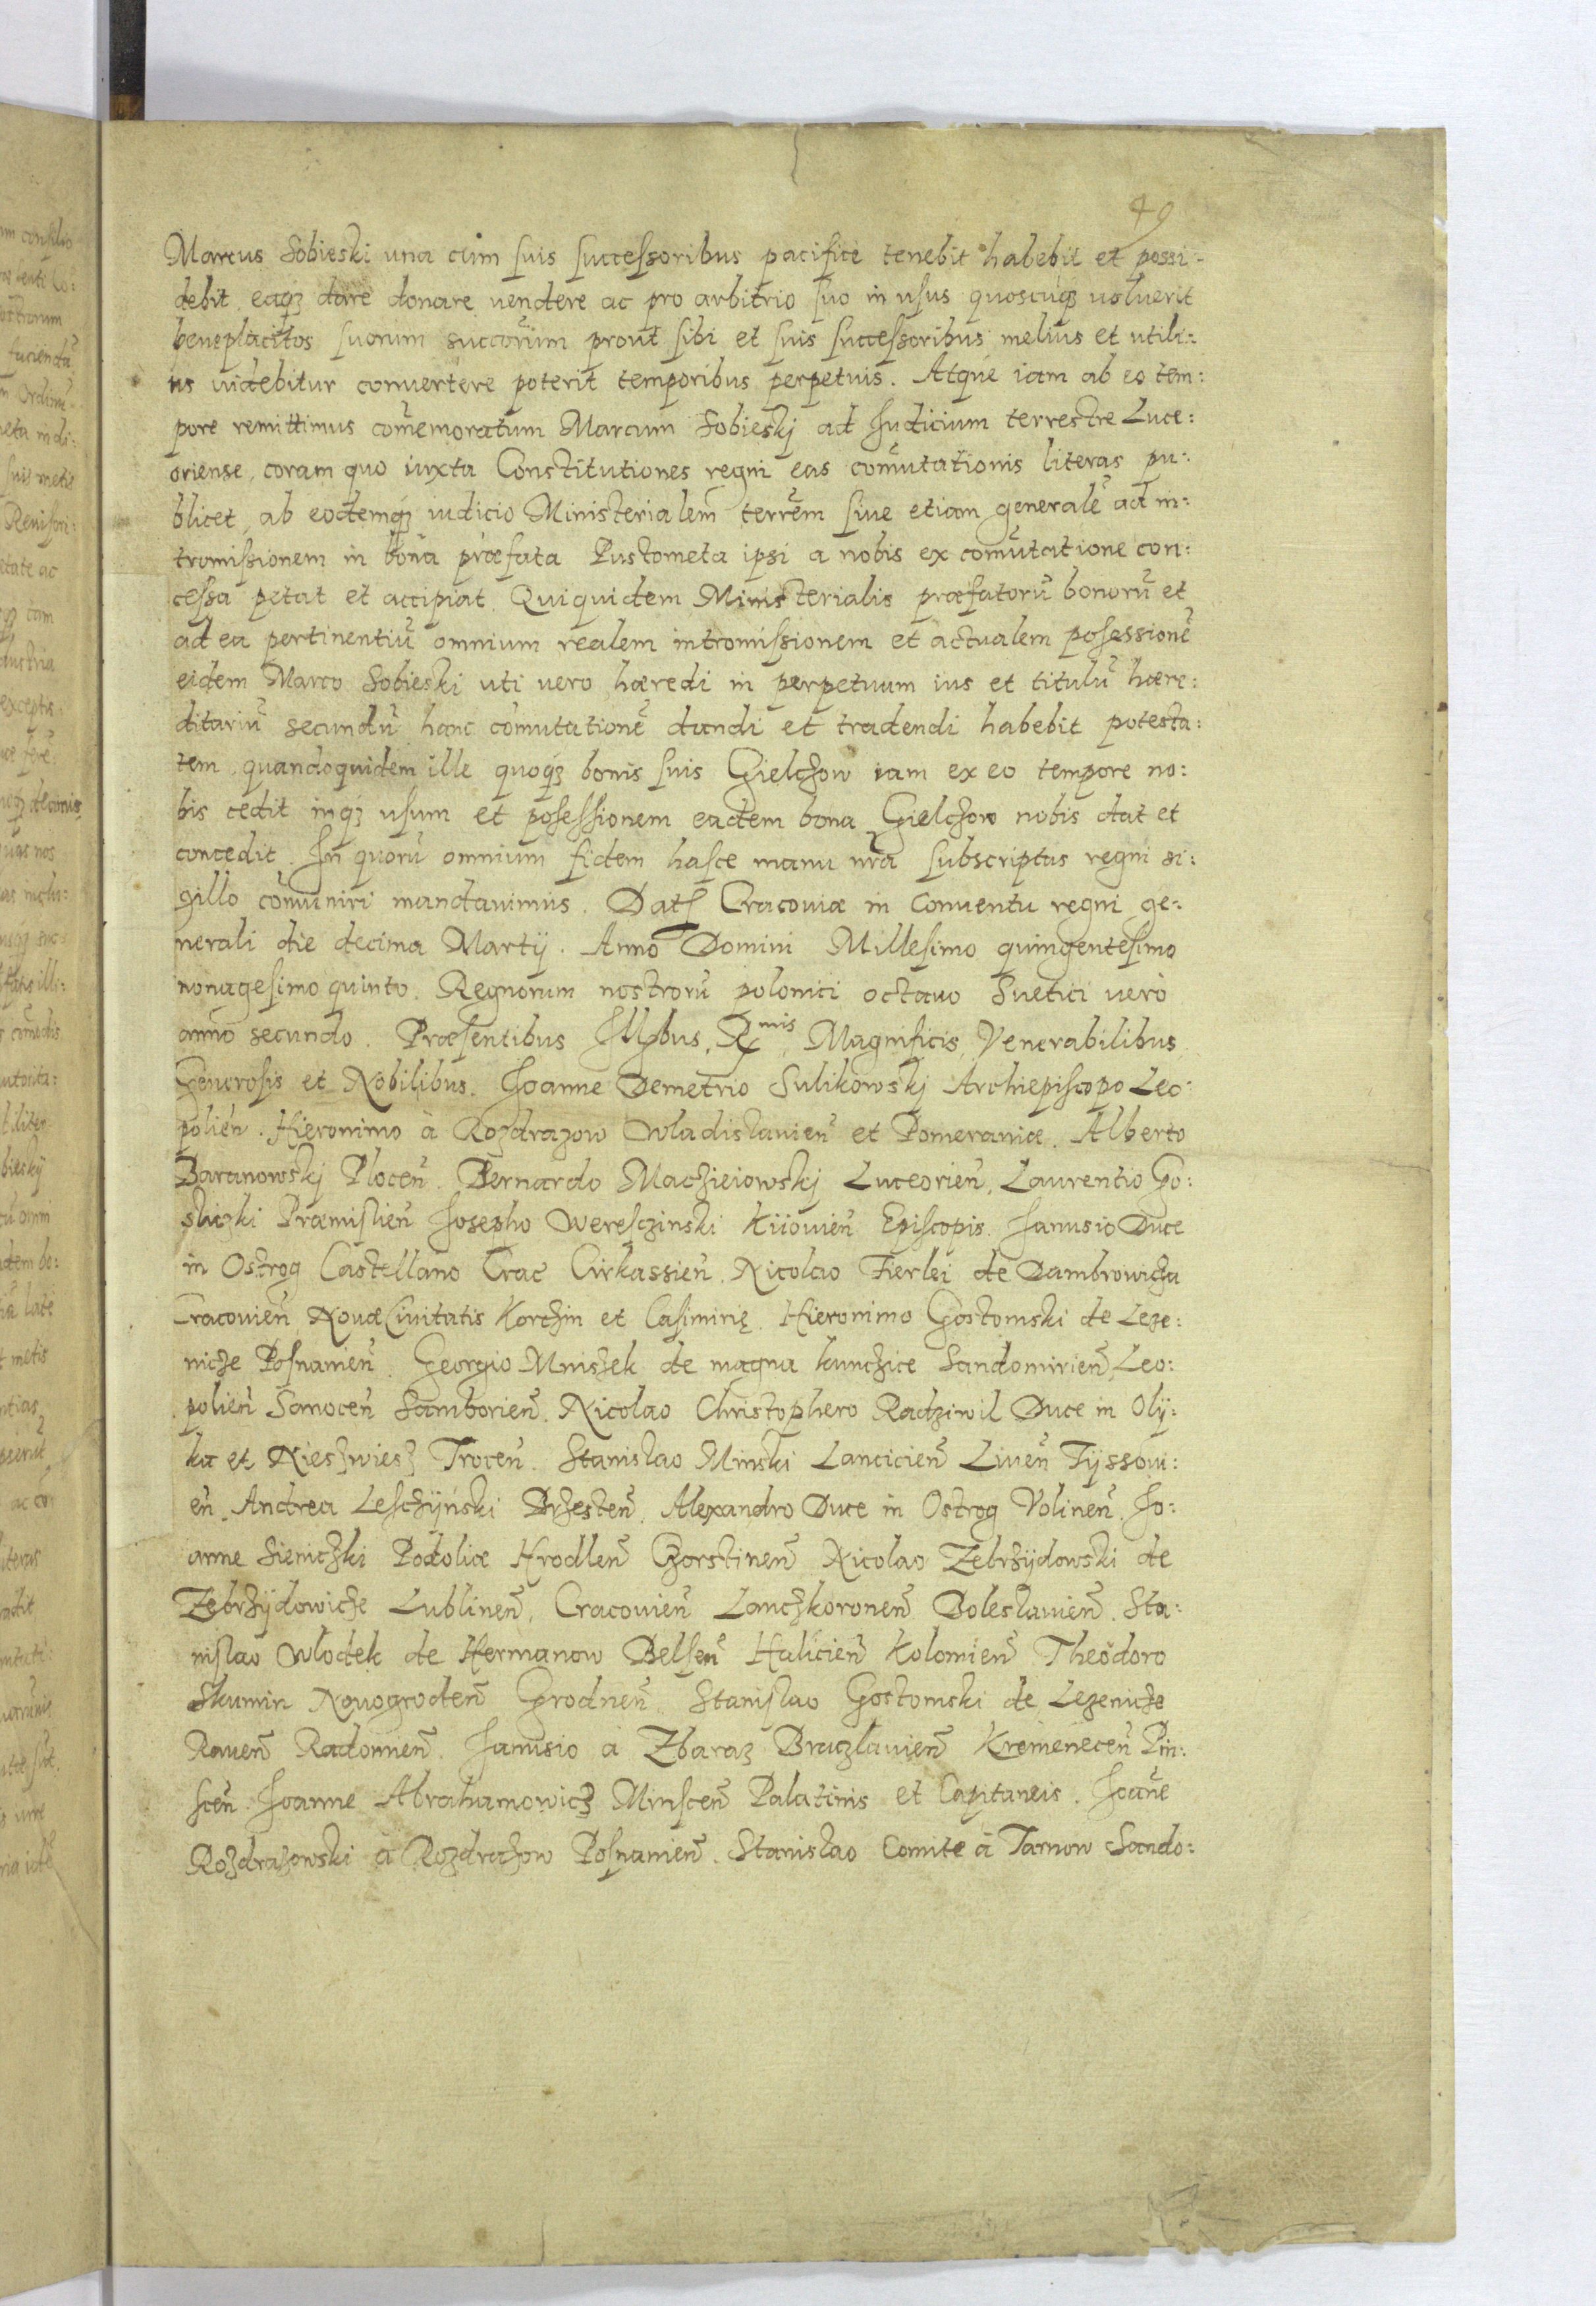 49
Marcus Sobieski una cum suis successoribus pacifice tenebit habebit et possi-
debit, eaq₃ dare donare vendere ac pro arbitrio suo in usus quoscuq₃ voluerit
beneplacitos suorum succorum prout sibi et suis successoribus melius et utili:
us videbitur convertere poterit temporibus perpetuis. Atque iam ab eo tem:
pore remittimus comemoratum Marcum Sobieskj ad Judicium terrestre Luce:
oriense, coram quo iuxta Constitutiones regni eas comutationis literas pu:
blicet, ab eodemq₃ iudicio Ministerialem terrem sive etiam generalē ad in:
tromissionem in bona præfata Pustometa ipsi a nobis ex comutatione con:
cessa petat et accipiat. Quiquidem Ministerialis præfatorū bonorū et
ad ea pertinentiū omnium realem intromissionem et actualem posessionē
eidem Marco Sobieski uti vero hæredi in perpetuum ius et titulū hære:
ditariū secundū hanc comutationē dandi et tradendi habebit potesta:
tem, quandoquidem ille quoq₃ bonis suis Gielchow iam ex eo tempore no:
bis cedit inq₃ usum et posessionem eadem bona Gielchow nobis dat et
concedit. In quorū omnium fidem hasce manu nra subscriptas regni si:
gillo comuniri mandavimus. Dat Cracoviæ in Conventu regni ge:
nerali die decima Martij. Anno Domini Millesimo quingentesimo
nonagesimo quinto. Regnorum nostrorū polonici octavo Suetici verò
anno secundo. Præsentibus Illbus, Rmis, Magnificis, Venerabilibus
Generosis et Nobilibus. Joanne Demetrio Sulikowskj Archiepiscopo Leo:
polieñ. Hieronimo à Rozdrazow Wladislavieñ et Pomeraniæ. Alberto
Baranowskj Ploceñ. Bernardo Maczieiowskj Luceorieñ. Laurentio Go:
sliczki Præmislieñ Josepho Weresczinski Kiiovieñ Episcopis. Janusio Duce
in Ostrog Castellano Crac Cirkassieñ. Nicolao Fierlei de Dambrowicza
Cracovieñ Novæ Civitatis Korczin et Casimirię. Hieronimo Gostomski de Leze:
nicze Posnanieñ. Georgio Mniszek de magna kunczice Sandomirieñ Leo:
polieñ Sanoceñ Samborieñ. Nicolao Christophero Radziwil Duce in Olij:
ka et Nieszwiesz Troceñ. Stanislao Minski Lancicieñ Liveñ Tijssovi:
eñ. Andrea Lesczijński Brzesteñ. Alexandro Duce in Ostrog Volineñ. Jo:
anne Sieniczki Podoliæ Hrodleñ Chorstineñ Nicolao Zebrzijdowski de
Zebrzijdowicze Lublineñ, Cracovieñ Lanczkoroneñ Boleslavieñ. Sta:
nislao Wlodek de Hermanow Belseñ Halicieñ Kolomieñ Theodoro
Skumin Novogrodeñ Grodneñ Stanislao Gostomski de Lezenicze
Raveñ Radomneñ. Janusio à Zbaraz Braczlavieñ Kremeneceñ Pin:
sceñ. Joanne Abrahamowicz Minsceñ Palatinis et Capitaneis. Joane
Rozdrazowski à Rozdrazow Posnanieñ. Stanislao Comite à Tarnow Sando: